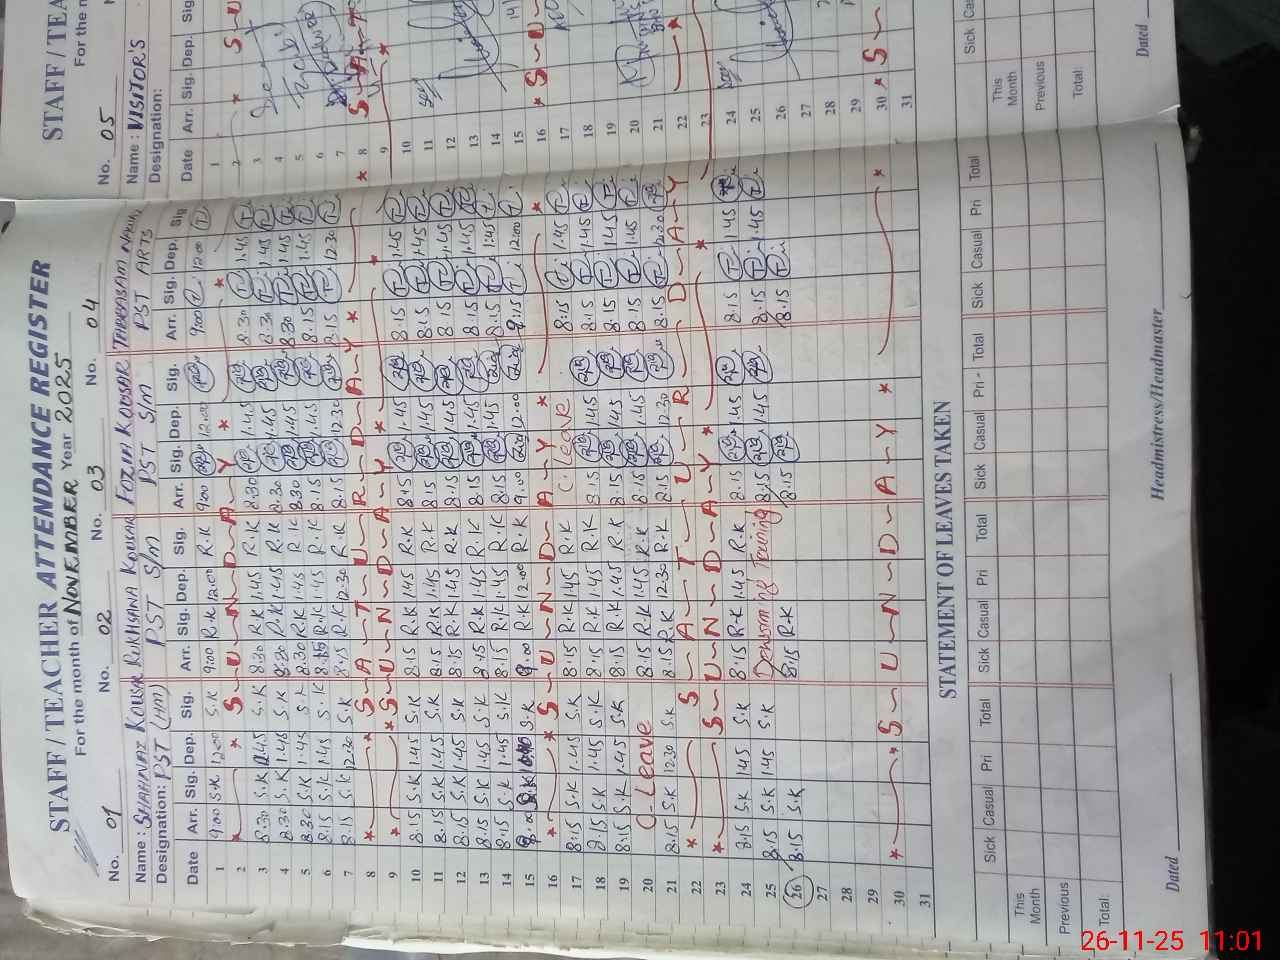 STAFF / TEACHER ATTENDANCE REGISTER
For the month of NOVEMBER Year 2025
No. 01 No. 02 No. 03 No. 04
Name : SHAHNAZ KOUSAR RUKHSANA KOUSAR FOZIA KOUSAR
Designation: PST (HM) PST S/M PST S/M PST ARTS
Date Arr. Sig. Dep. Sig. Arr. Sig. Dep. Sig. Arr. Sig. Dep. Sig. Arr. Sig. Dep. Sig
1 9:00 S.K 12:00 S.K 9:00 R.K 12:00 R.K 9:00 12:00 9:00 12:00
2 * S U N D A Y *
3 8.30 S.K 1.45 S.K 8.30 R.K 1.45 R.K 8.30 1.45 8.30 1.45
4 8.30 S.K 1.45 S.K 8.30 R.K 1.45 R.K 8.30 1.45 8.30 1.45
5 8.30 S.K 1.45 S.K 8.30 R.K 1.45 R.K 8.30 1.45 8.30 1.45
6 8.15 S.K 1.45 S.K 8.15 R.K 1.45 R.K 8.15 1.45 8.15 1.45
7 8.15 S.K 12.30 S.K 8.15 R.K 12.30 R.K 8.15 12.30 8.15 12.30
8 * S A T U R D A Y *
9 * S U N D A Y *
10 8.15 S.K 1.45 S.K 8.15 R.K 1.45 R.K 8.15 1.45 8.15 1.45
11 8.15 S.K 1.45 S.K 8.15 R.K 1.45 R.K 8.15 1.45 8.15 1.45
12 8.15 S.K 1.45 S.K 8.15 R.K 1.45 R.K 8.15 1.45 8.15 1.45
13 8.15 S.K 1.45 S.K 8.15 R.K 1.45 R.K 8.15 1.45 8.15 1.45
14 8.15 S.K 1.45 S.K 8.15 R.K 1.45 R.K 8.15 1.45 8.15 1.45
15 S.K 9.00 R.K 12.00 R.K 9.00 12.00 9.15 12:00
16 * S U N D A Y *
17 8.15 S.K 1.45 S.K 8.15 R.K 1.45 R.K C. Leave 8.15 1.45
18 8.15 S.K 1.45 S.K 8.15 R.K 1.45 R.K 8.15 1.45 8.15 1.45
19 8.15 S.K 1.45 S.K 8.15 R.K 1.45 R.K 8.15 1.45 8.15 1.45
20 C- Leave 8.15 R.K 1.45 R.K 8.15 1.45 8.15 1.45
21 8.15 S.K 12.30 S.K 8.15 R.K 12.30 R.K 8.15 12.30 8.15 12.30
22 * S A T U R D A Y
23 * S U N D A Y * *
24 8.15 S.K 1.45 S.K 8.15 R.K 1.45 R.K 8.15 1.45 8.15 1.45
25 8.15 S.K 1.45 S.K Training 8.15 1.45 8.15 1.45
26 8.15 S.K 8.15 R.K 8.15 8.15
27
28
29
30 * S U N D A Y *
31
STATEMENT OF LEAVES TAKEN
Sick Casual Pri Total Sick Casual Pri Total Sick Casual Pri - Total Sick Casual Pri Total
This Month
Previous
Total:
Dated
Headmistress/Headmaster
STAFF / TEA
For the m
No. 05
Name : VISITOR'S
Designation:
Date Arr. Sig. Dep. Sig
1
2 * S U
3
4
5
6
7
8 * S
9
10
11
12
13
14
15
16 * S U
17
18
19
20
21
22
23
24
25
26
27
28
29
30 * S
31
Sick Ca
This Month
Previous
Total:
Dated
26-11-25 11:01